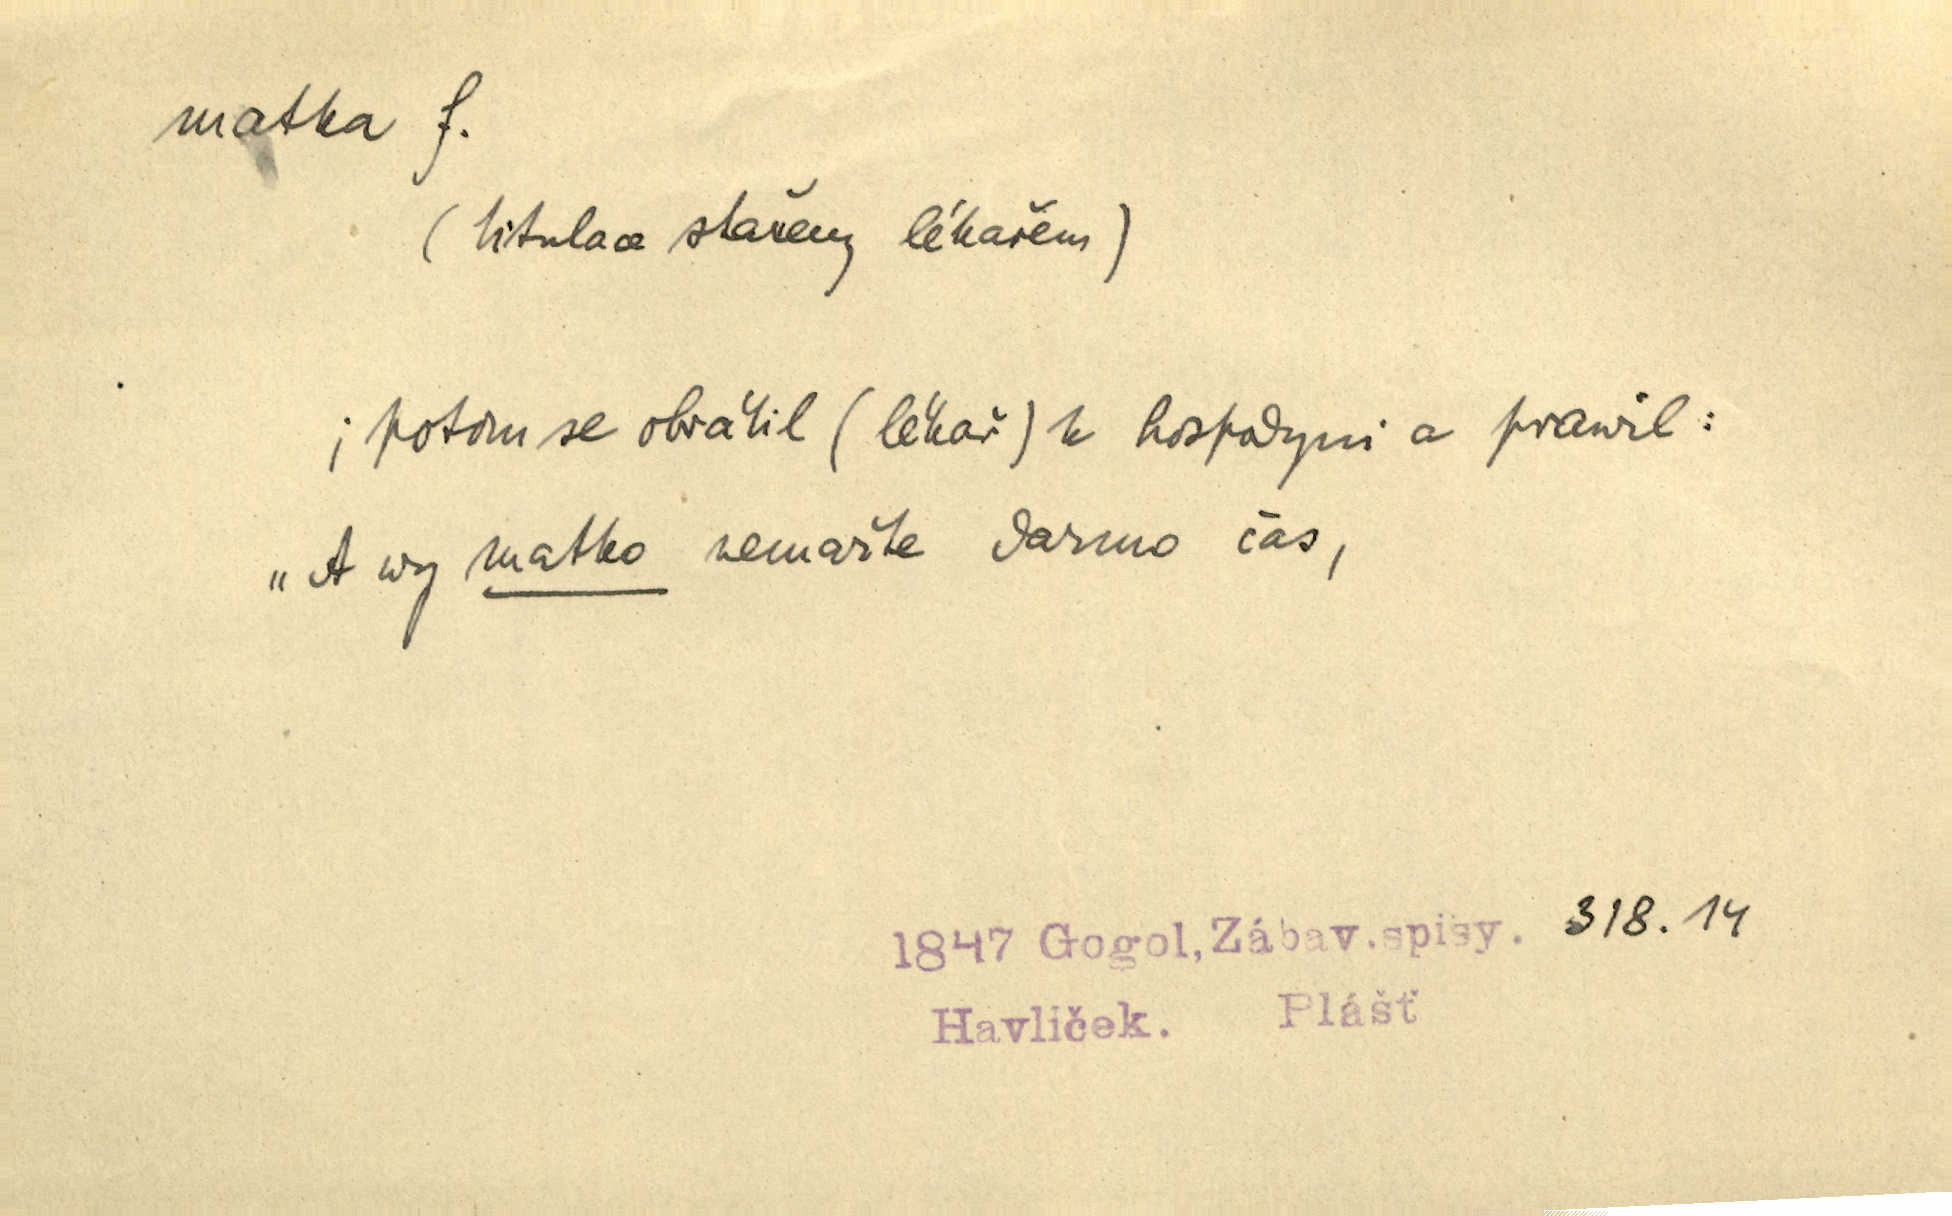 matka f.
(titulace stařeny lékařem)
; potom se obrátil (lékař) k hospodyni a prawil:
„A wy matko nemařte darmo čas,
1847 Gogol, Zábav.spisy. 318.14
Havlíček. Plášť